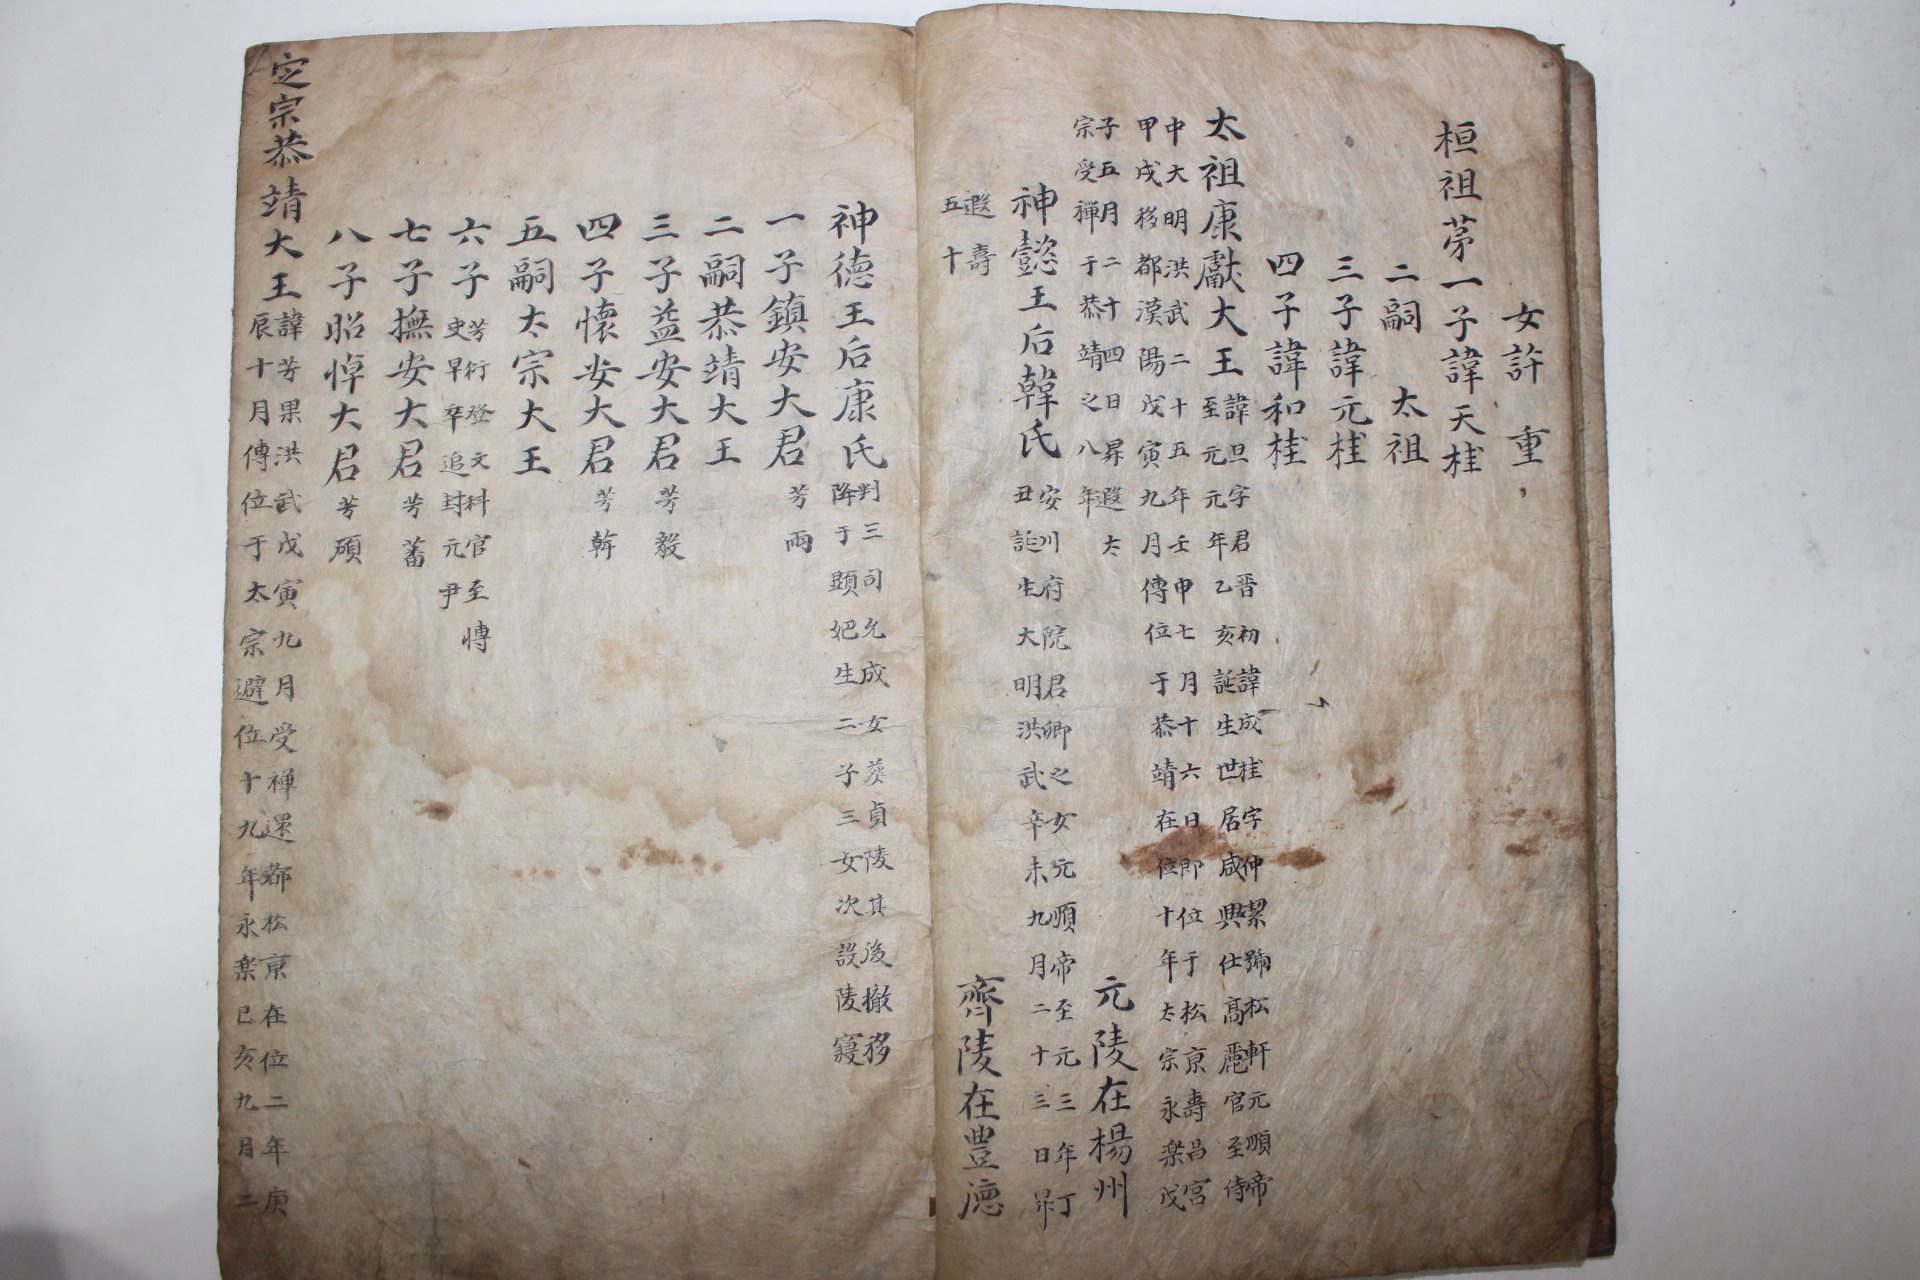 女許 重
桓祖苐一子諱天桂
二嗣 太祖
三子諱元桂
四子諱和桂
太祖康獻大王
諱旦字君晋初諱成桂字仲絜號松軒元順帝
至元元年乙亥誕生世居咸興仕高麗官至侍
中大明洪武二十五年壬申七月十六日即位于松亰壽昌宮
甲戌移都漢陽戊寅九月傳位于恭靖在位十年太宗永楽戊
子五月二十四日昇遐太
宗受禅于恭靖之八年
元陵在楊州
神懿王后韓氏
安川府院君卿之女元順帝至元三年丁
丑誕生大明洪武辛未九月二十三日昇
遐壽
五十
齊陵在豊德
神德王后康氏
判三司允成女葬貞陵其後撤移
降于顕妃生二子三女次設陵寢
一子鎮安大君 芳雨
二嗣恭靖大王
三子益安大君 芳毅
四子懷安大君 芳幹
五嗣太宗大王
六子
芳衍登文科官至
史早卒追封元尹
愽
七子撫安大君 芳蕃
八子昭悼大君 芳碩
定宗恭靖大王
諱芳果洪武戊寅九月受禅還都松亰在位二年庚
辰十月傳位于太宗避位十九年永楽己亥九月二